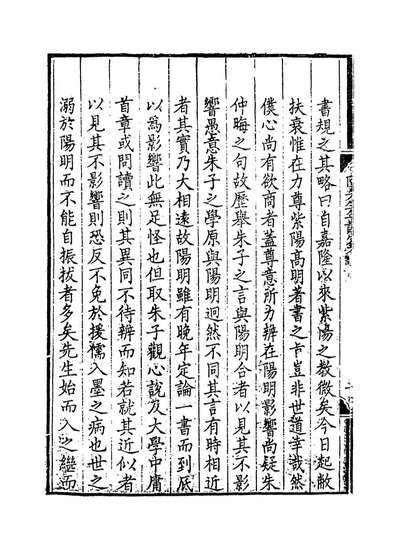 書規之其略曰自嘉隆以來紫陽之教微矣今日起敝
扶衰惟在力尊紫陽高明著書之
豈非世道幸哉然
僕心尚有欲商者蓋尊意所力辨在陽明影響尚疑朱
仲晦之句故歷舉朱子之言與陽明合者以見其不影
響愚意朱子之學原與陽明迥然不同其言有時相近
者其實乃大相遠故陽明雖有晚年定論一書而到底
以為影響此無足怪也但取朱子觀心說及大學中庸
首章或問讀之則其異同不待辨而知若就其近似者
以見其不影響則恐反不免於援儒入墨之病也世之
溺於陽明而不能自振拔者多矣先生始而入之繼而